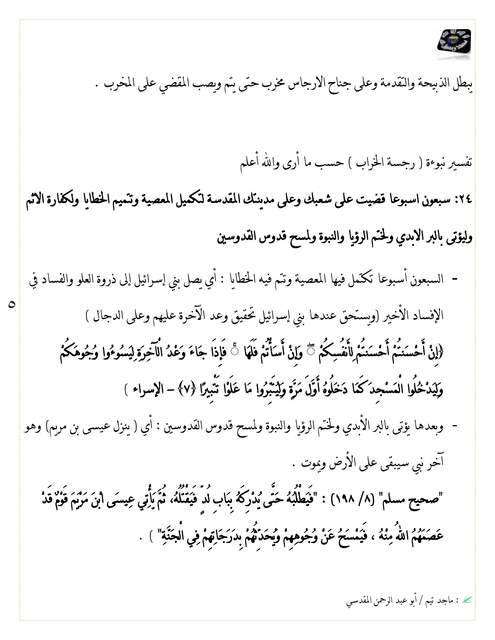 يبطل الذبيحة والتقدمة وعلى جناح الارجاس مخرب حتى يتم ويصب المقضي على المخرب .
تفسير نبوءة ( رجسة الخراب ) حسب ما أرى والله أعلم
٢٤: سبعون اسبوعا قضيت على شعبك وعلى مدينتك المقدسة لتكميل المعصية وتتميم الخطايا ولكفارة الاثم
وليؤتى بالبر الابدي ولختم الرؤيا والنبوة ولمسح قدوس القدوسين
- السبعون أسبوعا تكتمل فيها المعصية وتتم فيه الخطايا : أي يصل بني إسرائيل إلى ذروة العلو والفساد في
الإفساد الأخير (ويستحق عندها بني إسرائيل تحقيق وعد الآخرة عليهم وعلى الدجال )
﴿إِنْ أَحْسَنتُمْ أَحْسَنتُمْ لِأَنفُسِكُمْ ۖ وَإِنْ أَسَأْتُمْ فَلَهَا ۚ فَإِذَا جَاءَ وَعْدُ الْآخِرَةِ لِيَسُوءُوا وُجُوهَكُمْ
وَلِيَدْخُلُوا الْمَسْجِدَ كَمَا دَخَلُوهُ أَوَّلَ مَرَّةٍ وَلِيُتَبِّرُوا مَا عَلَوْا تَتْبِيرًا ﴿٧﴾ – الإسراء )
- وبعدها يؤتى بالبر الأبدي ولختم الرؤيا والنبوة ولمسح قدوس القدوسين : أي ( ينزل عيسى بن مريم) وهو
آخر نبي سيبقى على الأرض ويموت .
"صحيح مسلم" (٨/ ١٩٨) : "فَيَطْلُبُهُ حَتَّى يُدْرِكَهُ بِبَابِ لُدٍّ فَيَقْتُلُهُ، ثُمَّ يَأْتِي عِيسَى ابْنَ مَرْيَمَ قَوْمٌ قَدْ
عَصَمَهُمُ اللهُ مِنْهُ ، فَيَمْسَحُ عَنْ وُجُوهِهِمْ وَيُحَدِّثُهُمْ بِدَرَجَاتِهِمْ فِي الْجَنَّةِ" ) .
٥
: ماجد تيم / أبو عبد الرحمن المقدسي